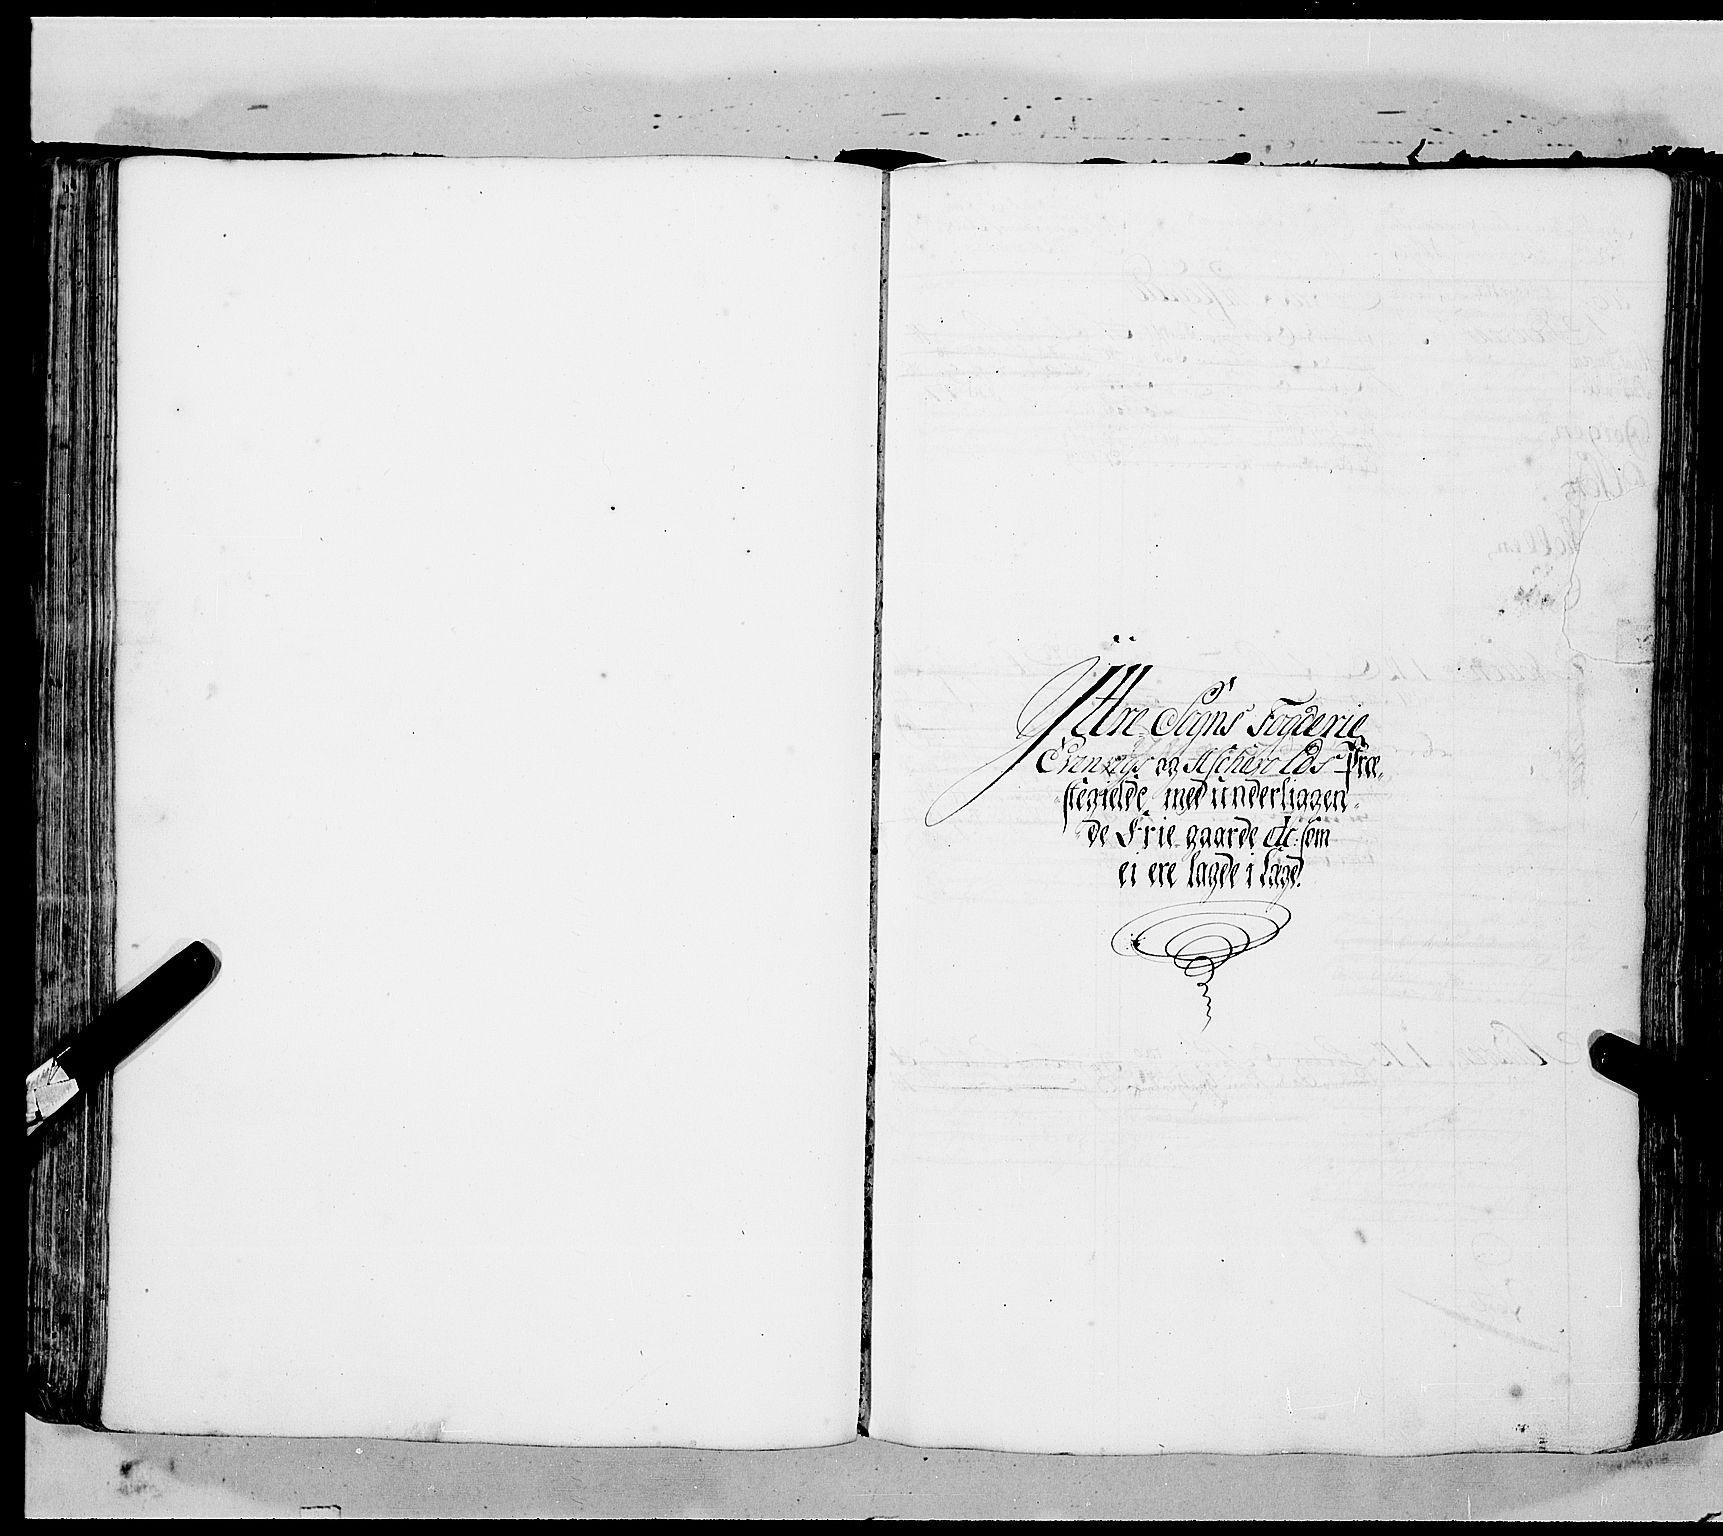 Yttre Sogns Fogderie
Evenvigs og Aschevolds Præ-
stegielde med underliggen-
de Frie gaarde etc: som
ei ere lagde i Lægd.